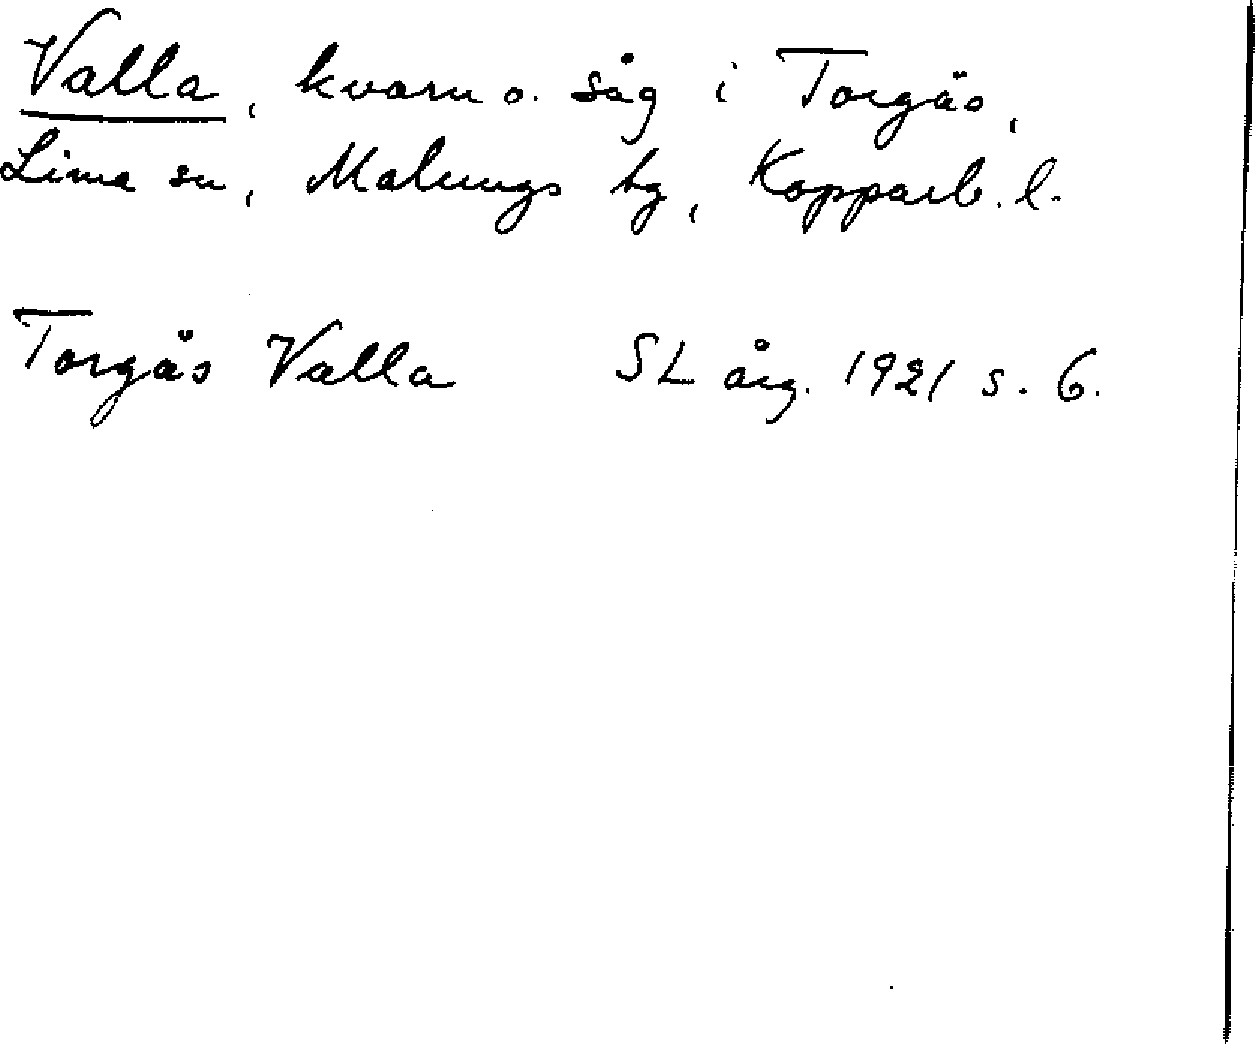 Valla, kvarn o. såg i Torgås,
Lima sn, Malungs tg, Kopparb. l.
Torgås Valla SL årg. 1921 s. 6.